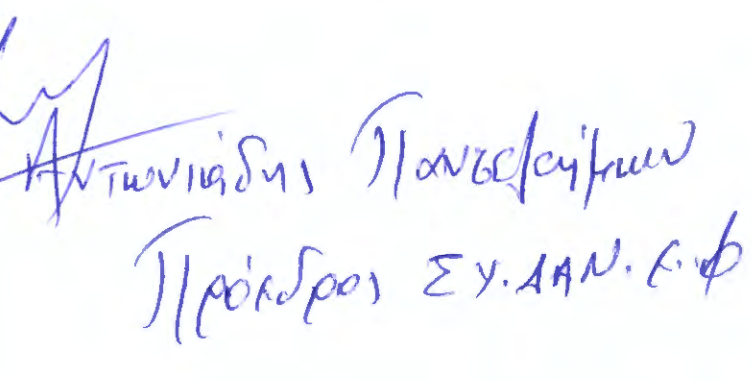 Αντωνιάδης Παντελεήμων
Πρόεδρος ΣΥ.ΔΑΝ.Ε.Φ